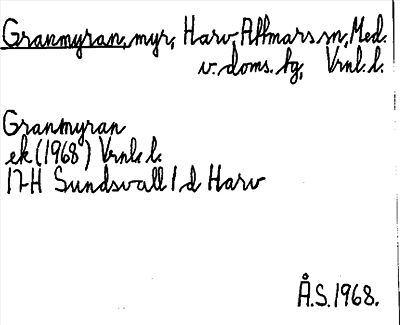 Granmyran, myr, Harv, Attmars sn, Med.
v. doms. hg, Vrnl. l.
Granmyran
ek (1968) Vrnl. l.
17H Sundsvall 1 d Harv
Å.S. 1968.